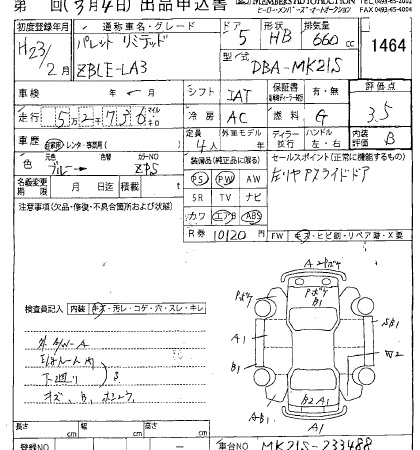 第 回 (3月4日) 出品申込書 MEMBERS AUTO AUCTION
ヒーロー・メンバーズ・オートオークション FAX 0493-65-4004
初度登録年月 通称車名・グレード ドア 形状 排気量
H23/2月 パレット リミテッド 5 HB 660cc 1464
ZBLE-LA3 型式 DBA-MK21S
車検 年 月 シフト IAT 保証書 有・無 評価点
走行 5万2千736 マイル キロ 冷房 AC 燃料 G 3.5
車歴 自家用 レンタ・事業用( ) 定員 4人 外車モデル ディーラー 並行 ハンドル 左・右 内装 B
色 元色 ブルー カラーNO ZJS 装備品(純正品に限る) セールスポイント(正常に機能するもの)
名義変更期限 月 日 積載 t PS PW AW 左リヤPスライドドア
注意事項(欠品・修復・不具合箇所および状態) SR TV ナビ
カワ エアB ABS
R券 10120円 FW キズ・ヒビ割・リペア跡・X要
A 2 Pボケ
Pボケ Pボケ B1
検査員記入 内装 キズ・汚レ・コゲ・穴・スレ・キレ
A1 SB1
外 A/W-A
B1 W2
下廻り S
キズ、B、ボコ
AB1 B2 A1
A1
長さ cm 幅 cm 高さ cm
登録NO 車台NO MK21S-233488